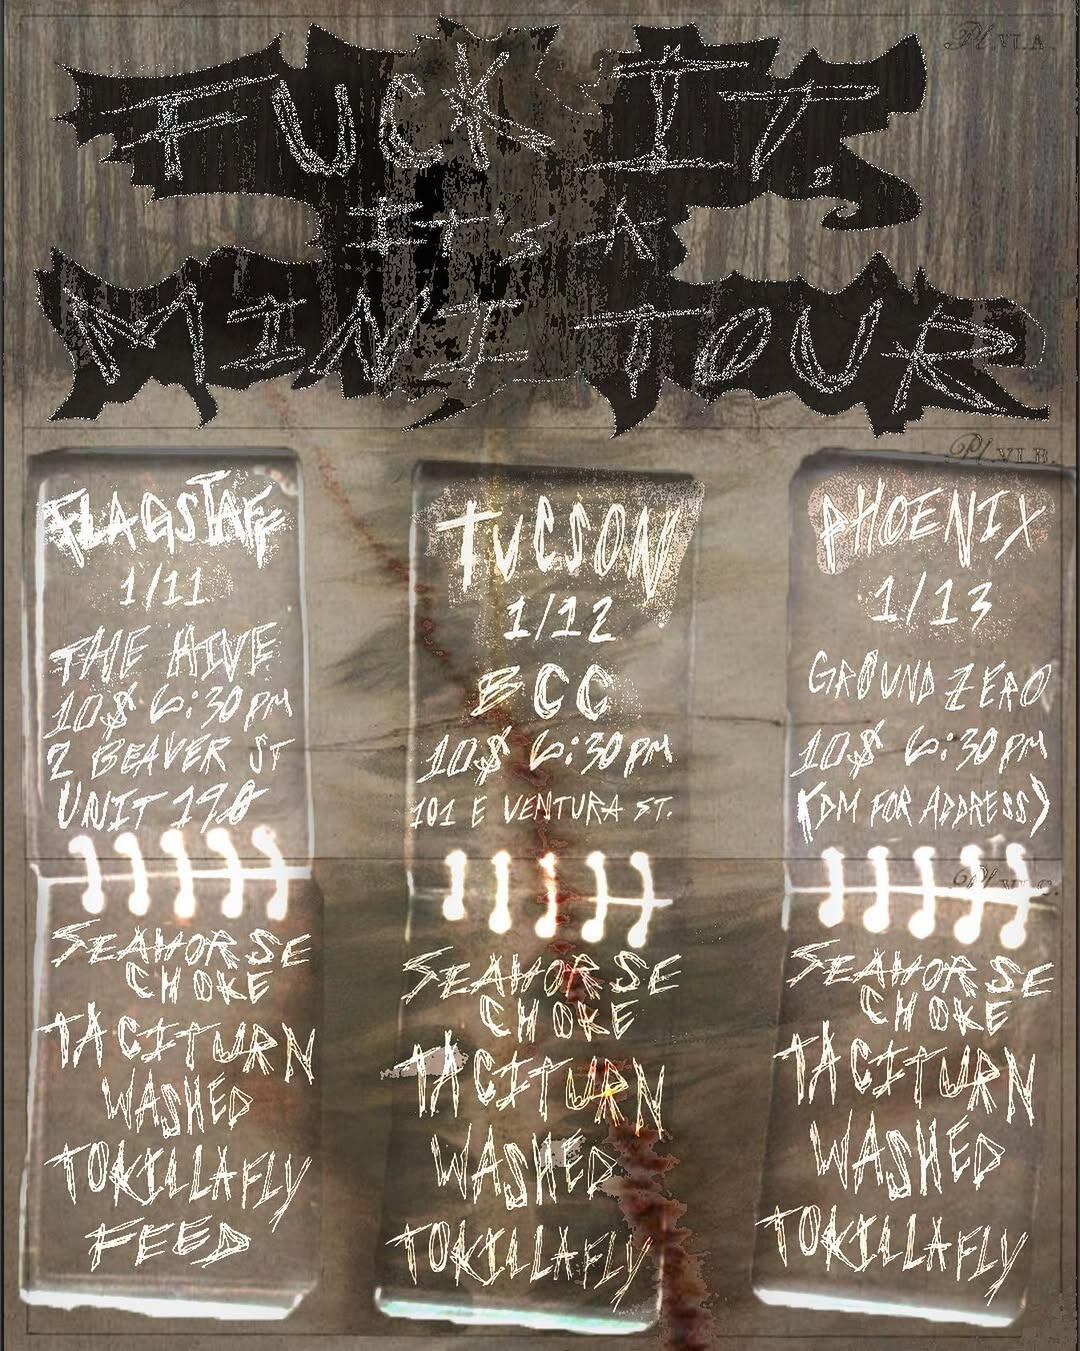 FUCK IT.
IT'S A
MINI TOUR
Pl. VI.A.
Pl. VI.B.
FLAGSTAFF
1/11
THE HIVE
10$ 6:30PM
2 BEAVER ST
UNIT 190
SEAHORSE
CHOKE
TACITURN
WASHED
TOKILLAFLY
FEED
TUCSON
1/12
BCC
10$ 6:30PM
101 E VENTURA ST.
SEAHORSE
CHOKE
TACITURN
WASHED
TOKILLAFLY
PHOENIX
1/13
GROUND ZERO
10$ 6:30PM
(DM FOR ADDRESS)
Pl. VI.C.
SEAHORSE
CHOKE
TACITURN
WASHED
TOKILLAFLY